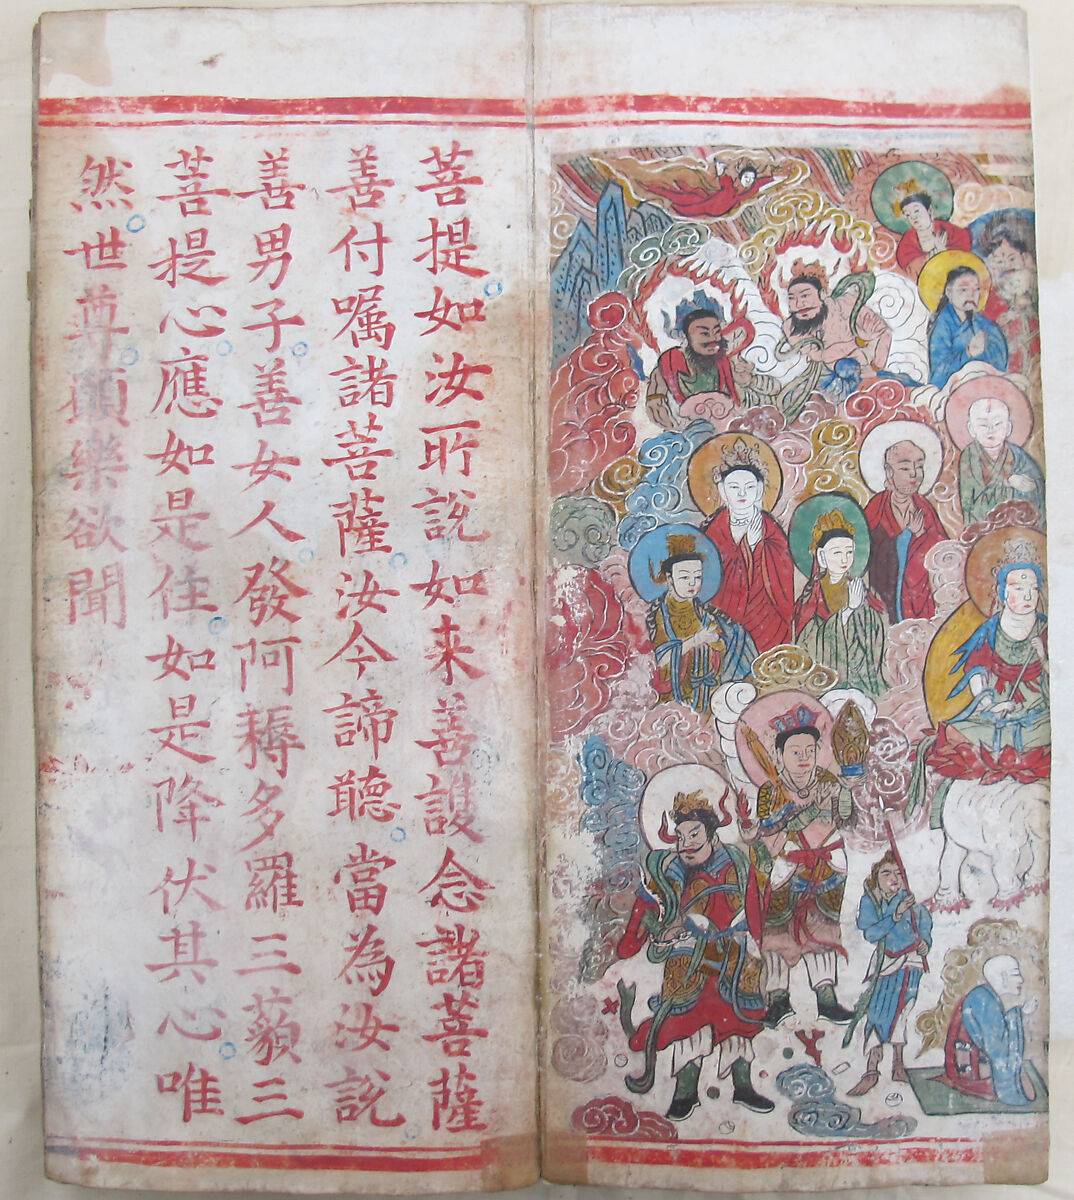 菩提。如汝所說如来善護念諸菩薩
善付囑諸菩薩。汝今諦聽。當為汝說。
善男子。善女人。發阿耨多羅三藐三
菩提心。應如是住。如是降伏其心。唯
然。世尊。願樂欲聞